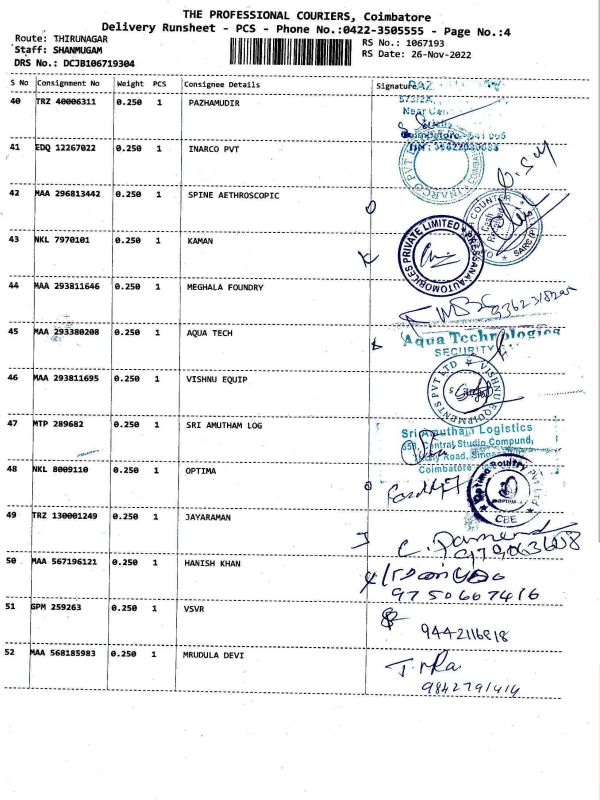 THE PROFESSIONAL COURIERS, Coimbatore
Delivery Runsheet - PCS - Phone No.:0422-3505555 - Page No.:4
Route: THIRUNAGAR
RS No.: 1067193
Staff: SHANMUGAM
RS Date: 26-Nov-2022
DRS No.: DCJB106719304
S No Consignment No Weight PCS Consignee Details Signature
40 TRZ 40006311 0.250 1 PAZHAMUDIR
41 EDQ 12267022 0.250 1 INARCO PVT
42 MAA 296813442 0.250 1 SPINE AETHROSCOPIC
43 NKL 7970101 0.250 1 KAMAN
PRIVATE LIMITED
44 MAA 293811646 0.250 1 MEGHALA FOUNDRY
45 MAA 293380208 0.250 1 AQUA TECH
Aqua Technologies
SECURITY
46 MAA 293811695 0.250 1 VISHNU EQUIP
47 MTP 289682 0.250 1 SRI AMUTHAM LOG
Sri Amutham Logistics
Central Studio Compund,
Coimbatore
48 NKL 8009110 0.250 1 OPTIMA
CBE
49 TRZ 130001249 0.250 1 JAYARAMAN
50 MAA 567196121 0.250 1 HANISH KHAN
9750607416
51 GPM 259263 0.250 1 VSVR
52 MAA 568185983 0.250 1 MRUDULA DEVI